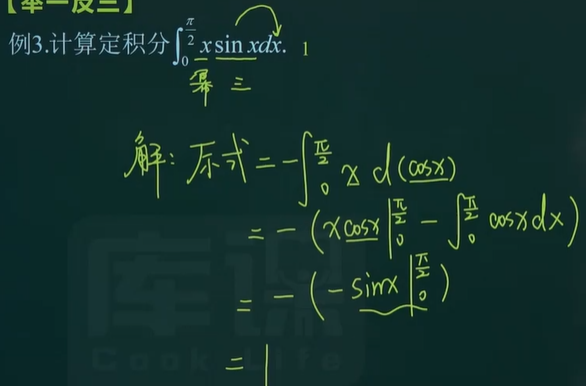 【举一反三】
例3.计算定积分∫₀^{π/2} x sin x dx. 1
幂 三
解: 原式 = -∫₀^{π/2} x d(cosx)
= -(x cosx |₀^{π/2} - ∫₀^{π/2} cosx dx)
= -(-sinx |₀^{π/2})
= 1
库课
Cook Life